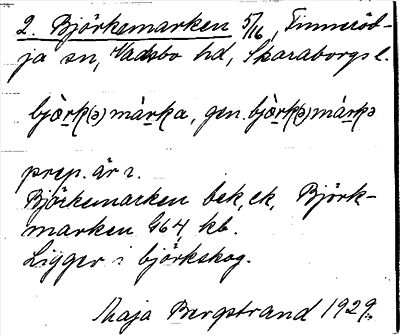 2. Björkemarken 5/16, Finneröd-
ja sn, Vadsbo hd, Skaraborgs l.
bjò̤rk(ə)màrka, gen. bjò̤rk(ə)màrkə
prep. är i.
Björkemarken bek, ek, Björk-
marken 964, kb.
Ligger i björkskog.
Maja Bergstrand 1929.